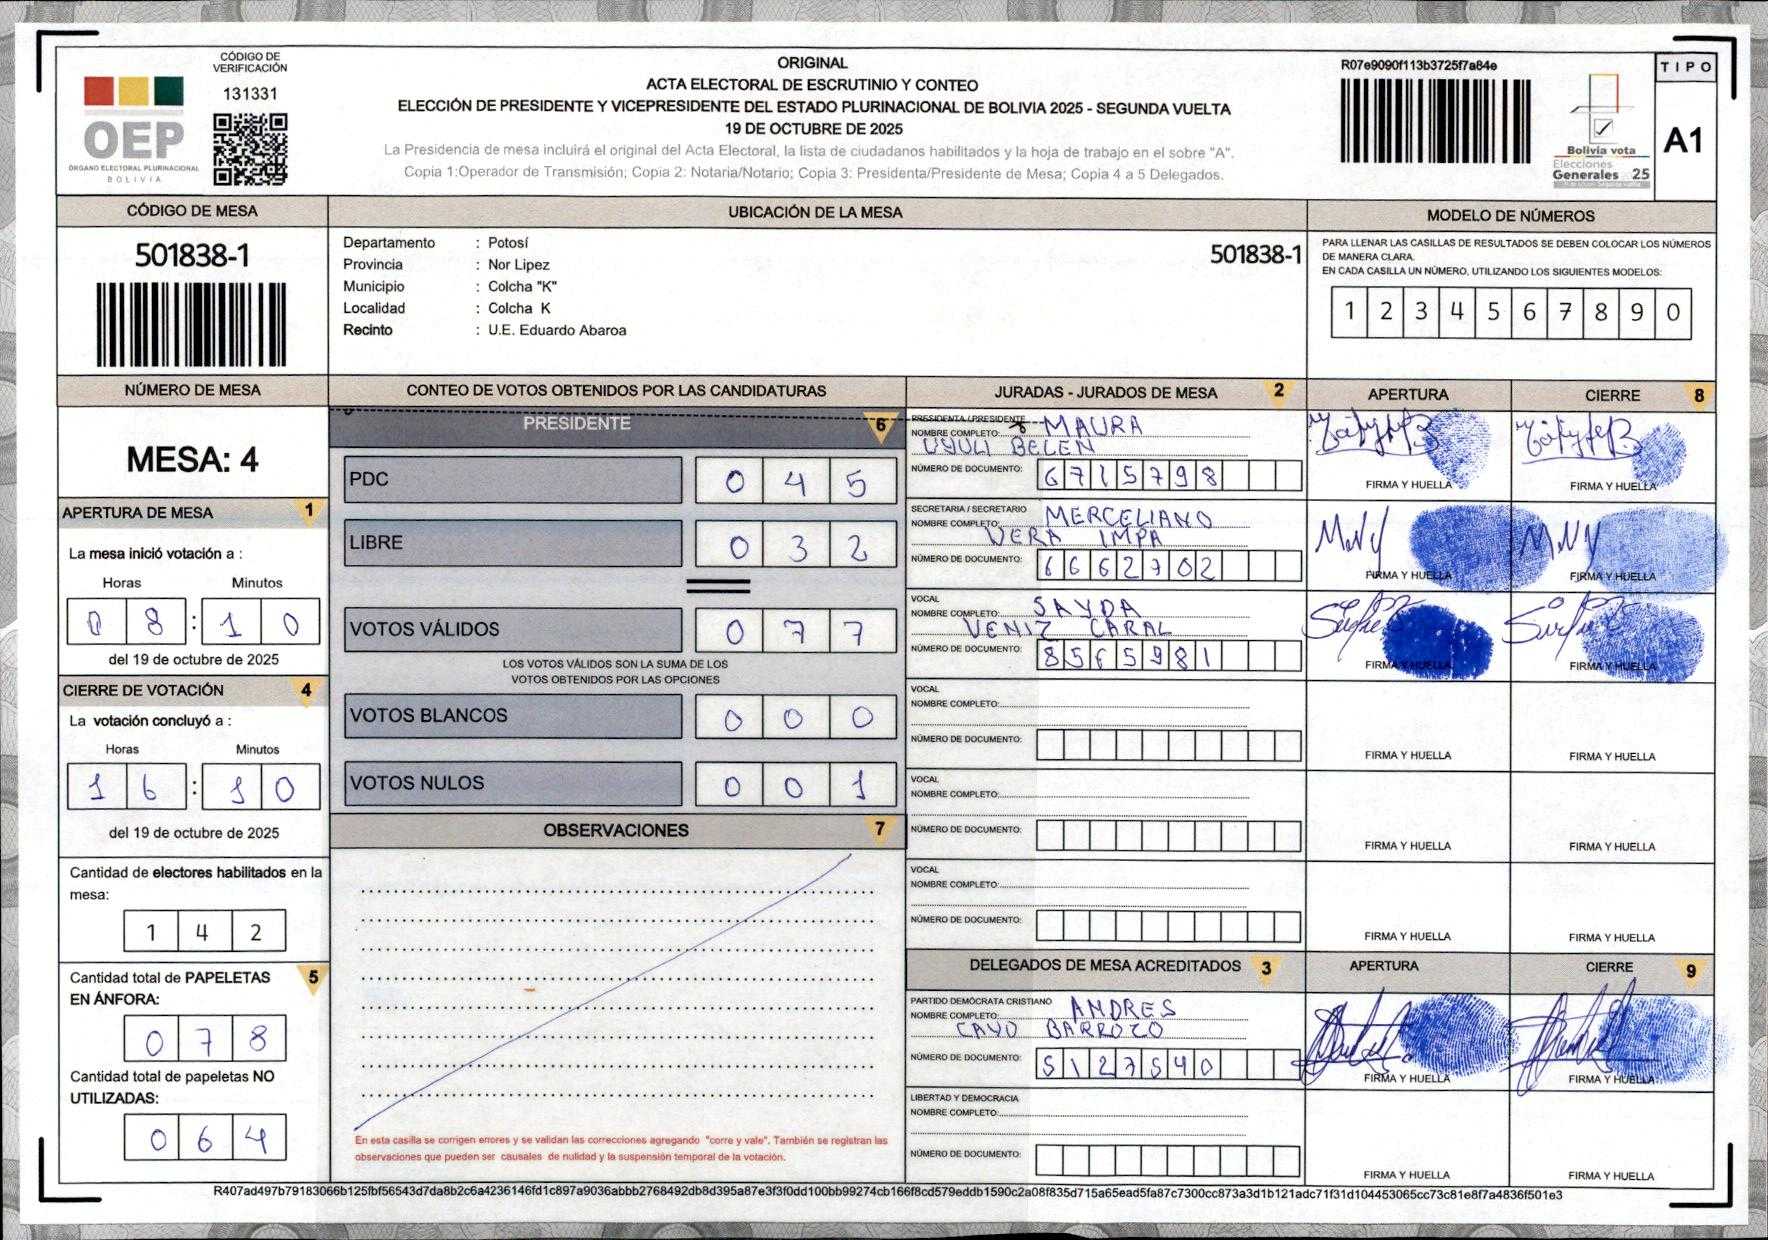 CÓDIGO DE
VERIFICACIÓN
131331
OEP
ÓRGANO ELECTORAL PLURINACIONAL
BOLIVIA
ORIGINAL
ACTA ELECTORAL DE ESCRUTINIO Y CONTEO
ELECCIÓN DE PRESIDENTE Y VICEPRESIDENTE DEL ESTADO PLURINACIONAL DE BOLIVIA 2025 - SEGUNDA VUELTA
19 DE OCTUBRE DE 2025
La Presidencia de mesa incluirá el original del Acta Electoral, la lista de ciudadanos habilitados y la hoja de trabajo en el sobre "A".
Copia 1:Operador de Transmisión; Copia 2: Notaria/Notario; Copia 3: Presidenta/Presidente de Mesa; Copia 4 a 5 Delegados.
R07e9090f113b3725f7a84e
Bolivia vota
Elecciones
Generales 25
TIPO
A1
CÓDIGO DE MESA
501838-1
UBICACIÓN DE LA MESA
Departamento : Potosí
Provincia : Nor Lipez
Municipio : Colcha "K"
Localidad : Colcha K
Recinto : U.E. Eduardo Abaroa
501838-1
MODELO DE NÚMEROS
PARA LLENAR LAS CASILLAS DE RESULTADOS SE DEBEN COLOCAR LOS NÚMEROS
DE MANERA CLARA.
EN CADA CASILLA UN NÚMERO, UTILIZANDO LOS SIGUIENTES MODELOS:
1 2 3 4 5 6 7 8 9 0
NÚMERO DE MESA
MESA: 4
APERTURA DE MESA 1
La mesa inició votación a :
Horas Minutos
0 8 : 1 0
del 19 de octubre de 2025
CIERRE DE VOTACIÓN 4
La votación concluyó a :
Horas Minutos
1 6 : 1 0
del 19 de octubre de 2025
Cantidad de electores habilitados en la
mesa:
1 4 2
Cantidad total de PAPELETAS 5
EN ÁNFORA:
0 7 8
Cantidad total de papeletas NO
UTILIZADAS:
0 6 4
CONTEO DE VOTOS OBTENIDOS POR LAS CANDIDATURAS
PRESIDENTE 6
PDC 0 4 5
LIBRE 0 3 2
VOTOS VÁLIDOS 0 7 7
LOS VOTOS VÁLIDOS SON LA SUMA DE LOS
VOTOS OBTENIDOS POR LAS OPCIONES
VOTOS BLANCOS 0 0 0
VOTOS NULOS 0 0 1
OBSERVACIONES 7
En esta casilla se corrigen errores y se validan las correcciones agregando "corre y vale". También se registran las
observaciones que pueden ser causales de nulidad y la suspensión temporal de la votación.
JURADAS - JURADOS DE MESA 2
APERTURA
CIERRE 8
PRESIDENTA / PRESIDENTE
NOMBRE COMPLETO: MAURA
UYULI BELEN
NÚMERO DE DOCUMENTO: 6715798
FIRMA Y HUELLA
FIRMA Y HUELLA
SECRETARIA / SECRETARIO
NOMBRE COMPLETO: MERCELIANO
VERA IMPA
NÚMERO DE DOCUMENTO: 6662702
FIRMA Y HUELLA
FIRMA Y HUELLA
VOCAL
NOMBRE COMPLETO: SAYDA
VENIZ CARAL
NÚMERO DE DOCUMENTO: 8565981
FIRMA Y HUELLA
FIRMA Y HUELLA
VOCAL
NOMBRE COMPLETO:
NÚMERO DE DOCUMENTO:
FIRMA Y HUELLA
FIRMA Y HUELLA
VOCAL
NOMBRE COMPLETO:
NÚMERO DE DOCUMENTO:
FIRMA Y HUELLA
FIRMA Y HUELLA
VOCAL
NOMBRE COMPLETO:
NÚMERO DE DOCUMENTO:
FIRMA Y HUELLA
FIRMA Y HUELLA
DELEGADOS DE MESA ACREDITADOS 3
APERTURA
CIERRE 9
PARTIDO DEMÓCRATA CRISTIANO
NOMBRE COMPLETO: ANDRES
CAYO BARROZO
NÚMERO DE DOCUMENTO: 5127540
FIRMA Y HUELLA
FIRMA Y HUELLA
LIBERTAD Y DEMOCRACIA
NOMBRE COMPLETO:
NÚMERO DE DOCUMENTO:
FIRMA Y HUELLA
FIRMA Y HUELLA